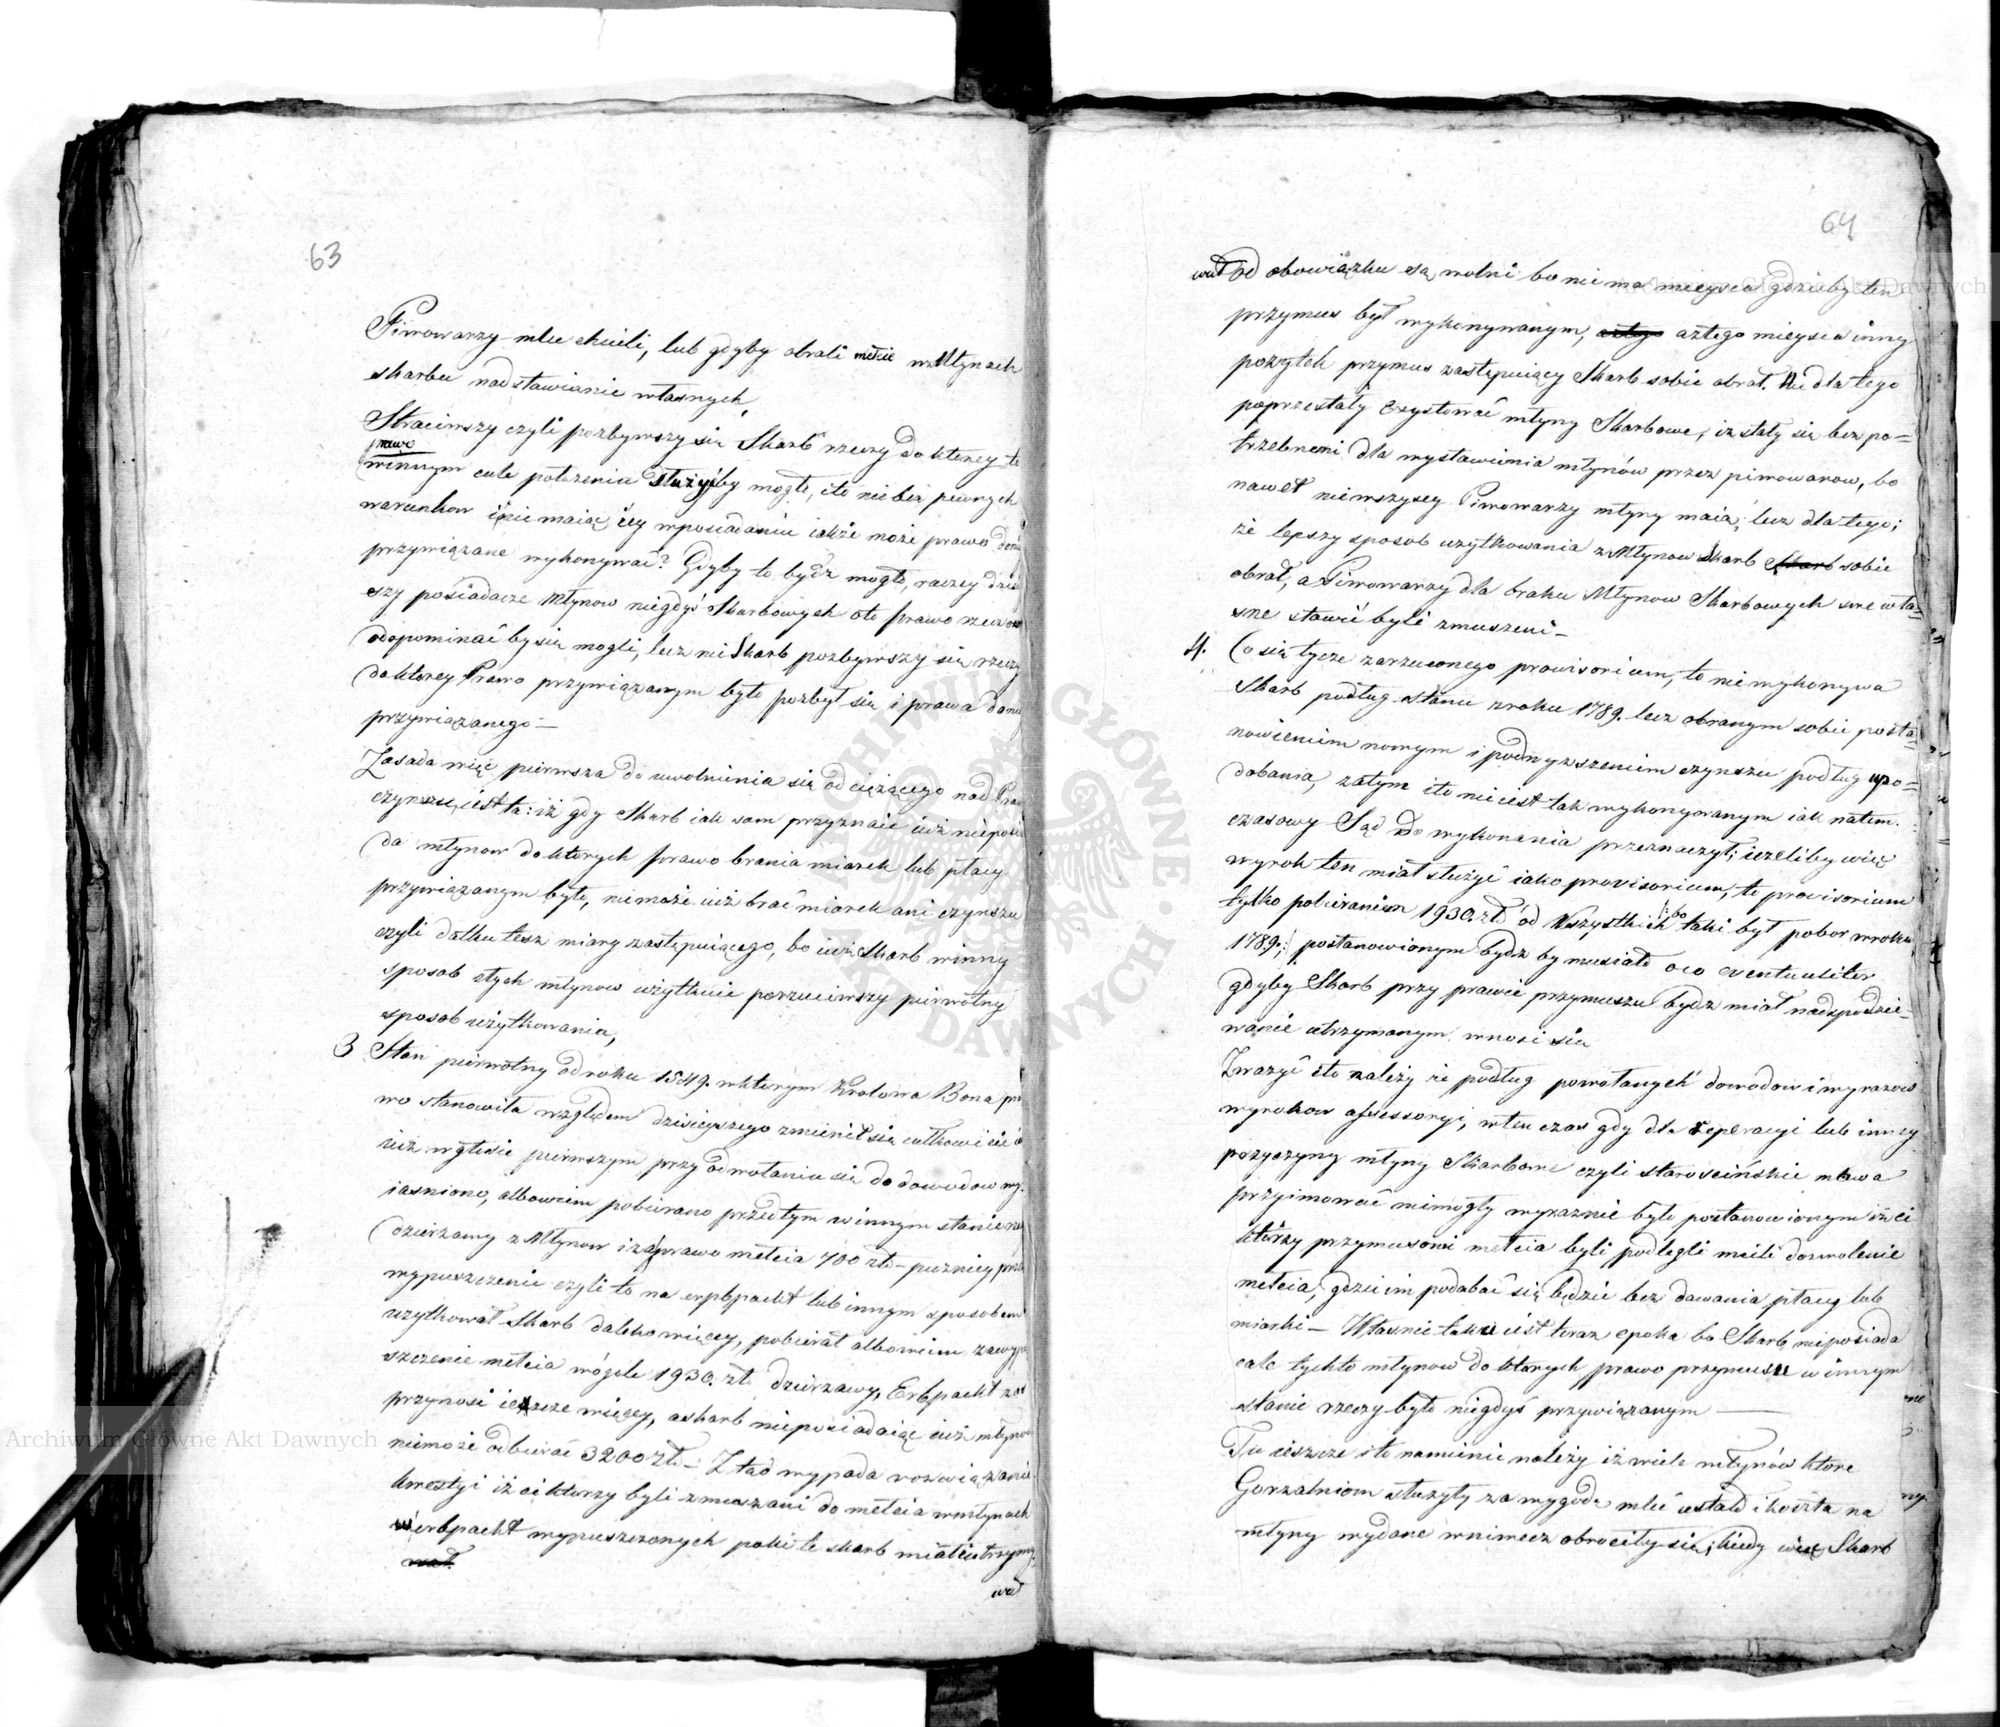 63
Piwowarzy mlec chcieli, lub gdyby obrali mełcie w Młynach
skarbu nad stawianie własnych,
Straciwszy czyli pozbywszy się Skarb rzeczy do ktorey to
prawo
w innym cale położeniu służyćby mogło, i to nie bez pewnych
warunkow i nie maiąc iey w posiadaniu iakże może prawo do niey
przywiązane wykonywać? Gdyby to bydź mogło, raczey dzisiey
szy posiadacze Młynow niegdyś Skarbowych o to prawo
odopominać by się mogli, lecz nie Skarb pozbywszy się rzeczy
do ktorey Prawo przywiązanym było pozbył się i prawa do niey
przywiązanego —
Zasada więc pierwsza do uwolnienia się od ciężącego nad
czynszu, iest ta: iż gdy Skarb iak sam przyznaie iuż nieposia
da młynow do ktorych prawo brania miarek lub płacy
przywiązanym było, niemoże iuż brać miarek ani czynszu
czyli datku tesz miary zastępuiącego, bo iuż Skarb w inny
sposob z tych młynow użytkuie porzuciwszy pierwotny
sposob użytkowania,
3 Stan pierwotny od roku 1549. w ktorym Krolowa Bona pra
wo stanowiła względem dzisieyszego zmienił się całkowicie
iuż w głosie pierwszym przy odwołaniu się do dowodow wy-
iaśniono, albowiem pobierano przedtym w innym stanie
dzierżawy z Młynow i za prawo mełcia 700 zł — pozniey przez
wypuszczenie czyli to na erpbpacht lub innym sposobem
uzytkował Skarb daleko więcey, pobierał albowiem za wypu
szczenie mełcia w ogole 1930. zł. dzierzawy, Erbpacht zaś
przynosi ieszcze więcey, a skarb nieposiadaiąc iuż młynow
niemoże odbierać 3200 zł — Ztąd wypada rozwiązanie
kwestyi iż ci ktorzy byli zmuszani do mełcia w młynach
w erbpacht wypuszczonych poki te skarb miał i utrzymy-
wał
64
wał od obowiązku są wolni bo nie ma mieysca gdzieby ten
przymus był wykonywanym, a z tego mieysca inny
pożytek przymus zastępuiący Skarb sobie obrał. Nie dla tego
poprzestały exystować młyny Skarbowe, iż stały się bez po=
trzebnemi dla wystawienia młynów przez piwowarow, bo
nawet niewszyscy Piwowarzy młyny maią; lecz dla tego;
że lepszy sposob uzytkowania z Młynow Skarb Skarb sobie
obrał, a Piwowarzy dla braku Młynow Skarbowych swe wła=
sne stawić byli zmuszeni —
4. Co się tycze zarzuconego prowisorium, to nie wykonywa
Skarb podług stanu z roku 1789. lecz obranym sobie posta=
nowieniem nowym i podwyzszeniem czynszu podług upo=
dobania, zatym i to nie iest tak wykonywanym iak natem-
czasowy Sąd do wykonania przeznaczył; ieżeliby więc
wyrok ten miał służyć iako provisorium, to provisorium
tylko pobieraniem 1930. zł od Wszystkich bo taki był pobor w roku
1789.; postanowionym bydz by musiało o co eventualiter
gdyby Skarb przy prawie przymuszu bydz miał nadspodzie=
wanie utrzymanym wnosi się
Zwazyć i to należy że podług powołanych dowodow i wyrazow
wyrokow assessoryi, w ten czas gdy dla reperacyi lub inney
przyczyny młyny Skarbowe czyli starościńskie mlewa
przyimować niemogły wyraznie było postanowionym iż ci
którzy przymusowi mełcia byli podlegli mieli dozwolenie
mełcia, gdzie im podobać się będzie bez dawania płacy lub
miarki — Właśnie taka iest teraz epoka bo Skarb nieposiada
cale tychto młynow do ktorych prawo przymusu w innym
stanie rzeczy było niegdyś przywiązanym —
Tu ieszcze i to namienić należy iż wiele młynów ktore
Gorzalniom służyły za wygodę mleć ustało i koszta na
młyny wydane wniwecz obrociły się, kiedy więc Skarb
Archiwum Główne Akt Dawnych
Archiwum Główne Akt Dawnych
ARCHIWUM GŁÓWNE AKT DAWNYCH